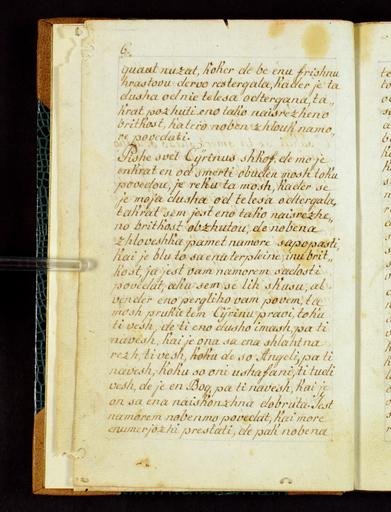 6.
quaut nuzat, koker de be enu frishnu
hrastovu dervo restergala, kader je ta
dusha od nie telesa odtergana, ta,,
krat pozhuti eno tako naisrezheno
britkost, katero noben zhlouk namo,
re povedati.
Pishe svet Cyrinus shkof, de mo je
enkrat en od smerti obuden mosh toku
povedou, je reku ta mosh, kader se
je moja dusha od telesa odtergala,
takrat sem jest eno tako naisrezhe,
no britkost obzhutou, de nobena
zhloveshka pamet namore sapopasti,
kai je blu to sa ena terpleine, inu brit,
kost, ja jest vam namorem sadosti
povedat, aku sem se lih skusu, al
vender eno pergliho vam povem, ta
mosh pruki tem Cyrinu pravi, toku
ti vesh, de ti eno dusho imash, pa ti
navesh, kai je ona sa ena shlahtna
rezh, ti vesh, koku de so Angeli, pa ti
navesh, koku so oni ushafani, ti tudi
vesh, de je en Bog, pa ti navesh, kai je
on sa ena naiskonzhna dobruta. Jest
namorem nobenmo povedat, kai more
en umerjozhi prestati, de pak nobena